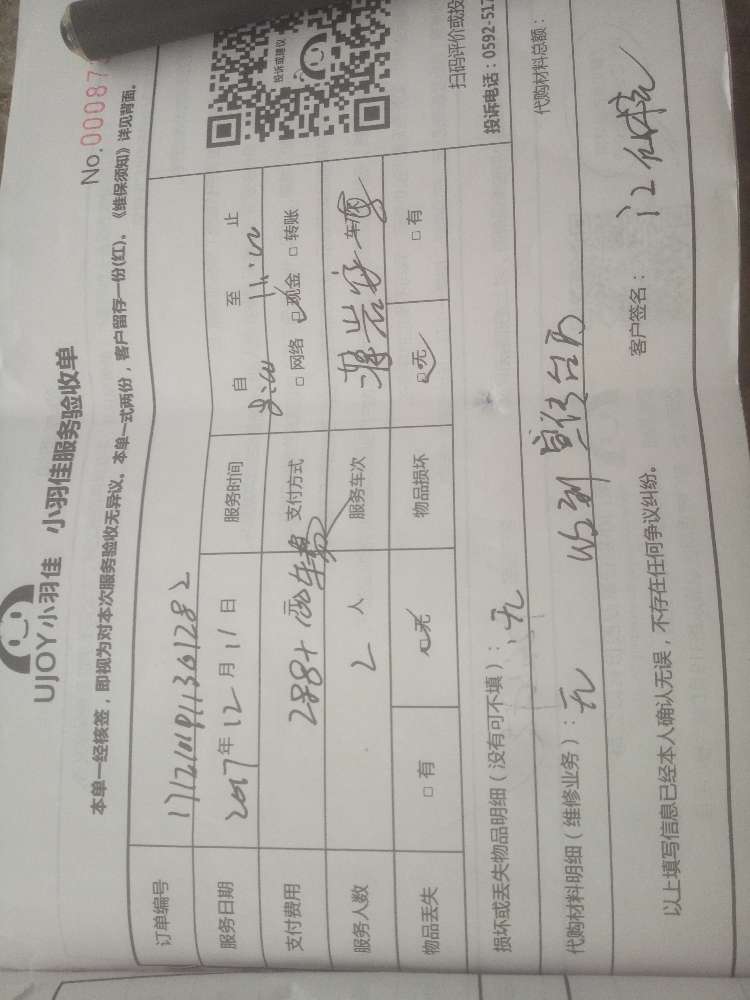 UJOY小羽佳 小羽佳服务验收单
No.00087
本单一经核签，即视为对本次服务验收无异议。本单一式两份，客户留存一份(红)。《维保须知》详见背面。
投诉或建议
扫码评价或投
投诉电话：0592-517
订单编号 1712101911361282
服务日期 2017年12月11日 服务时间 自 至 止
支付费用 288+ 元 支付方式 □网络 □现金 □转账
服务人数 2人 服务车次 车/次
物品丢失 □有 □无 物品损坏 □无 □有
损坏或丢失物品明细（没有可不填）：无
代购材料明细（维修业务）：无 代购材料总额：
以上填写信息已经本人确认无误，不存在任何争议纠纷。 客户签名：